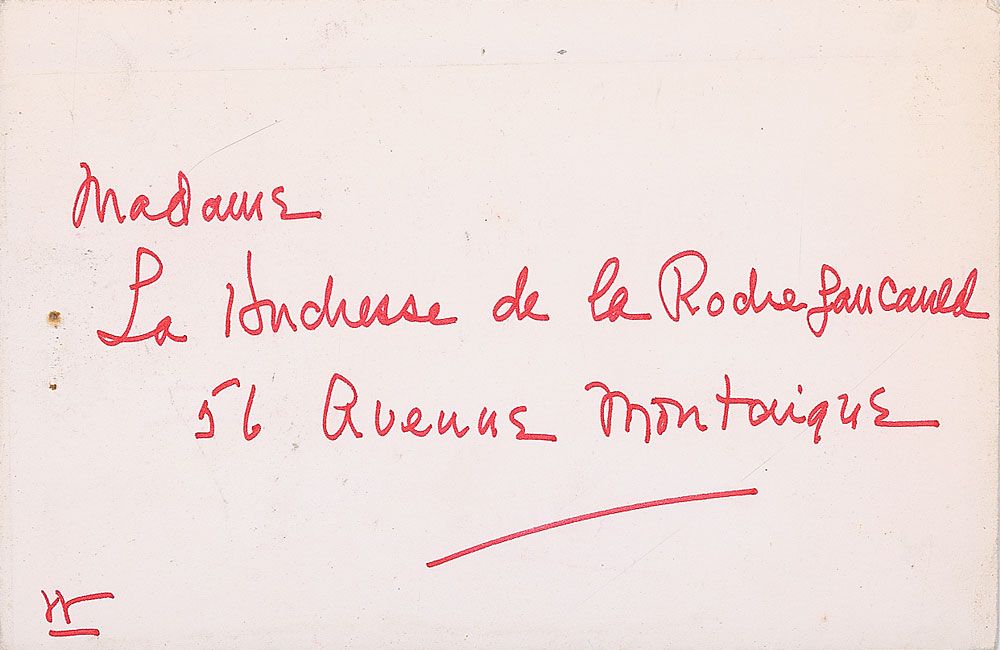 Madame
La Duchesse de la Rochefaucauld
56 Avenue Montaigne